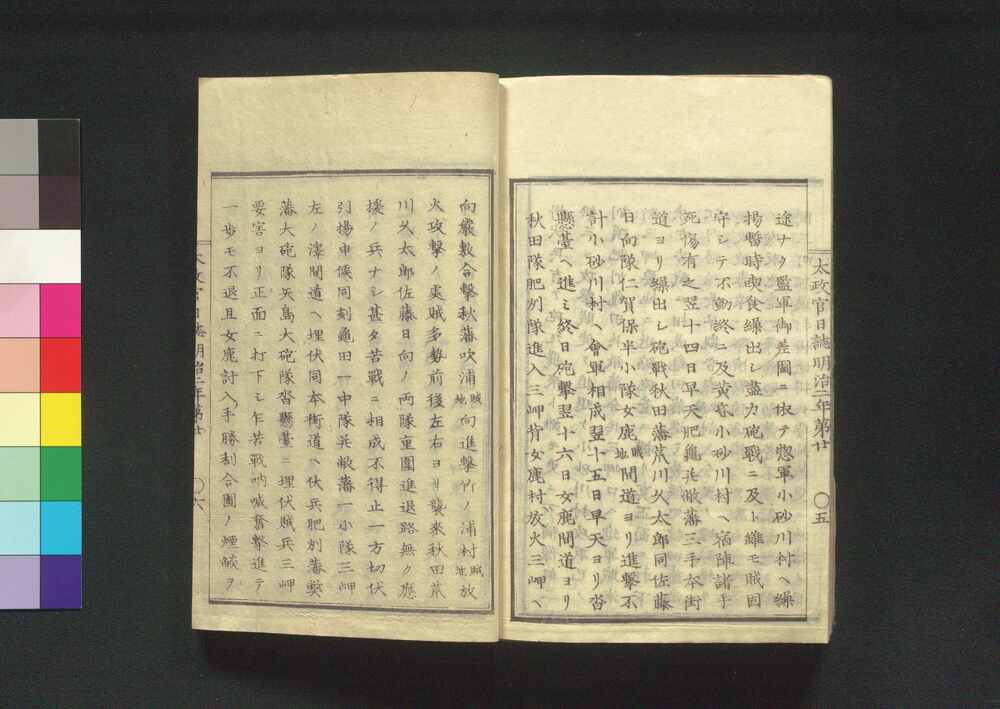 途ナク監軍御差圖ニ依テ惣軍小砂川村ヘ繰
揚暫時喫食繰出シ盡力砲戰ニ及ト雖モ賊固
守シテ不動終ニ及黄昏小砂川村ヘ宿陣諸手
死傷有之翌十四日早天肥龜兵敝藩三手本街
道ヨリ繰出シ砲戰秋田藩荒川久太郎同佐藤
日向隊仁賀保半小隊女鹿賊地間道ヨリ進撃不
計小砂川村ヘ會軍相成翌十五日早天ヨリ沓
懸臺ヘ進ミ終日砲撃翌十六日女鹿間道ヨリ
秋田隊肥列隊進入三岬背女鹿村放火三岬ヘ
太政官日誌明治二年第廿
〇五
向嚴敷合撃秋藩吹浦賊地向進撃ノ浦村賊地放
火攻撃ノ處賊多勢前後左右ヨリ襲來秋田荒
川久太郎佐藤日向ノ両隊重圍進退路無ク應
援ノ兵ナシ甚タ苦戰ニ相成不得止一方切伏
引揚申候同刻龜田一中隊兵敝藩一小隊三岬
左ノ澤間道ヘ埋伏同本街道ヘ伏兵肥列藩弊
藩大砲隊矢島大砲隊沓懸臺ニ埋伏賊兵三岬
要害ヨリ正面ニ打下シ乍苦戰吶喊奮撃進テ
一歩モ不退且女鹿討入手勝利合圖ノ煙燄ヲ
太政官日誌明治二年第廿
〇六